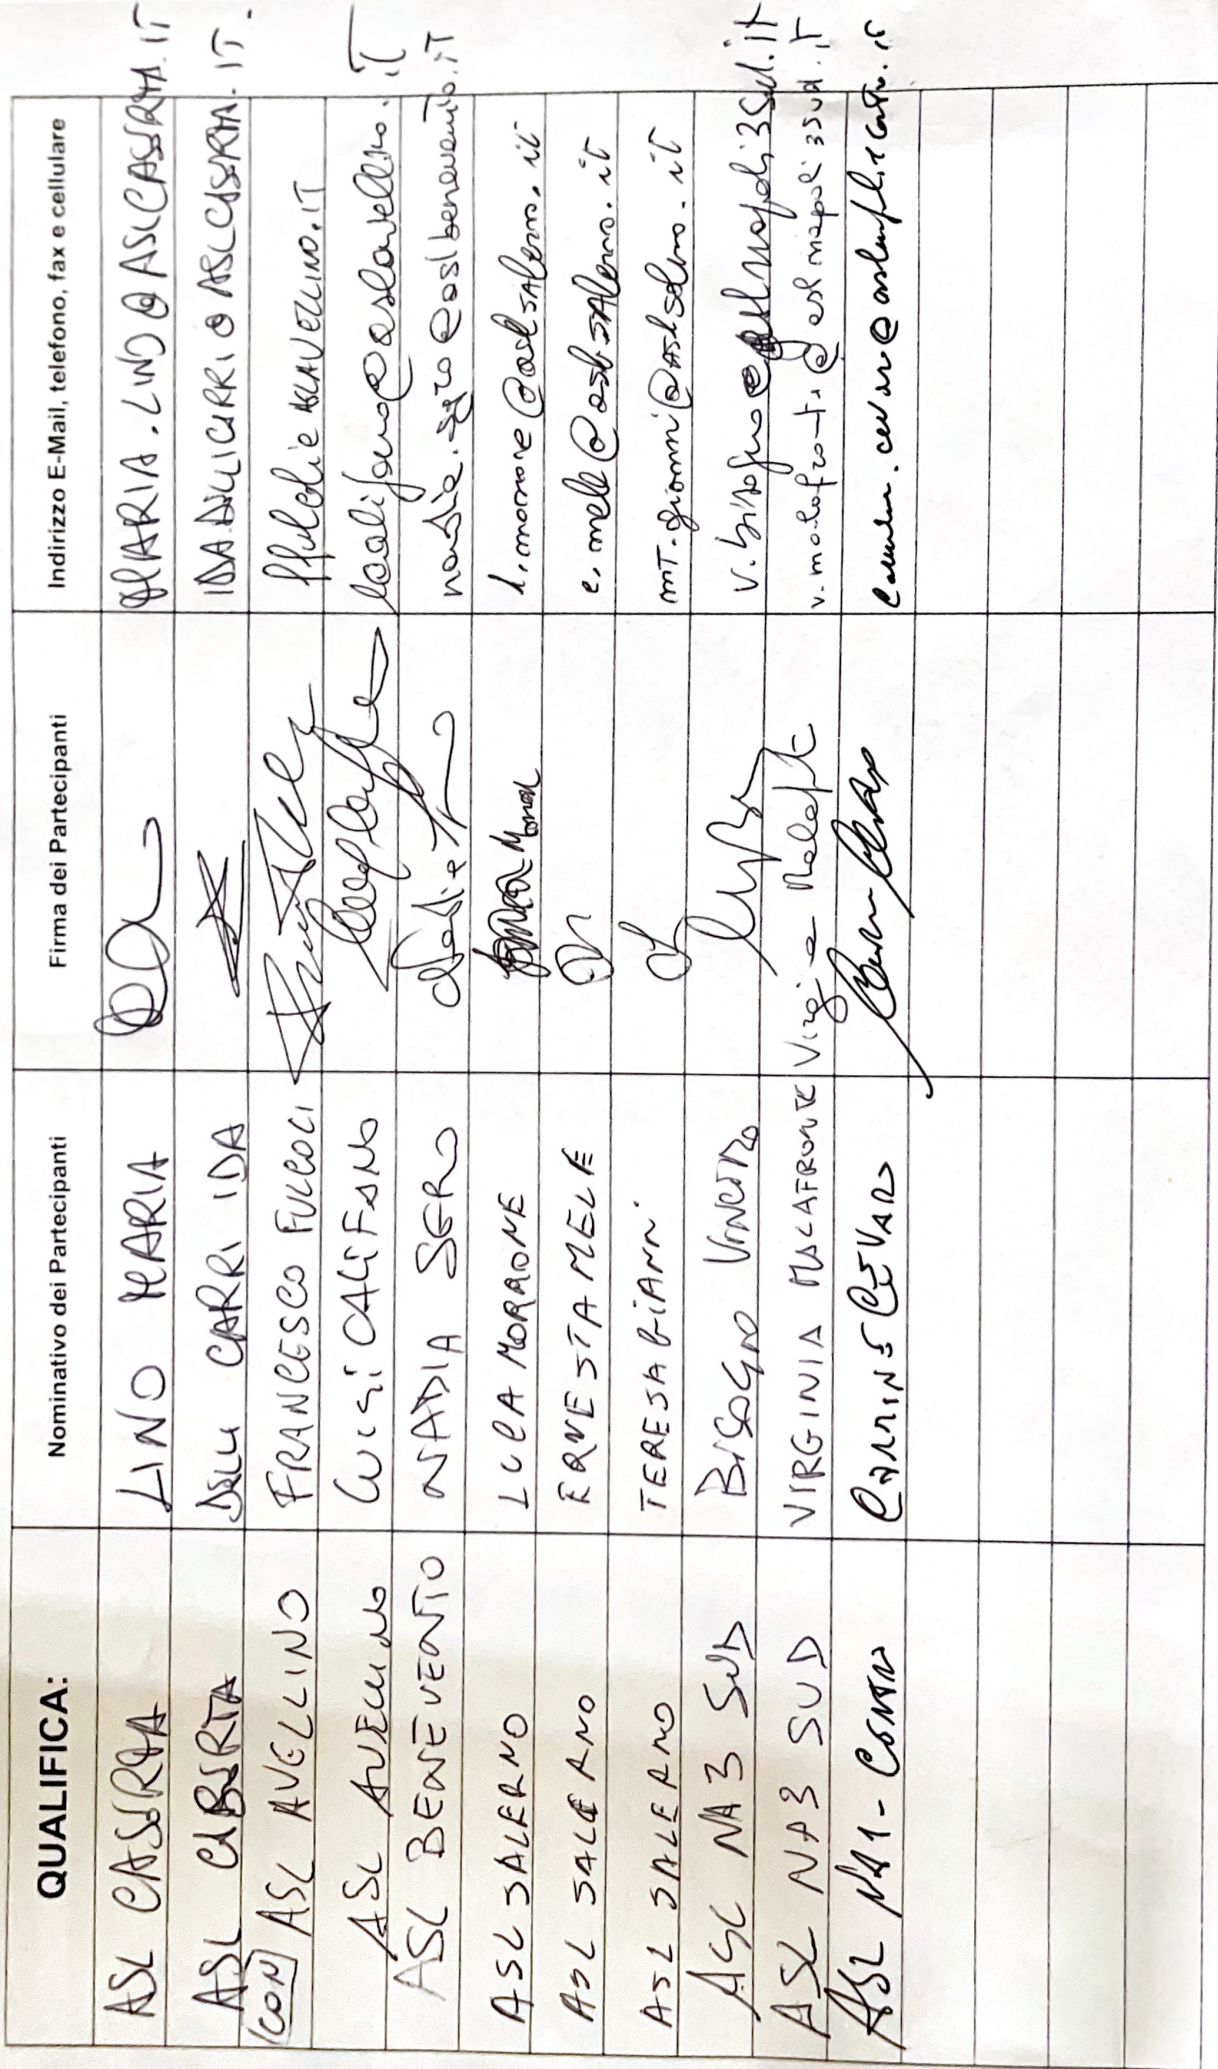 QUALIFICA: Nominativo dei Partecipanti Firma dei Partecipanti Indirizzo E-Mail, telefono, fax e cellulare
ASL CASERTA LINO MARIA MARIA.LINO@ASLCASERTA.IT
ASL CASERTA DELLI CARRI IDA IDA.DELLICARRI@ASLCASERTA.IT.
ICON ASL AVELLINO FRANCESCO FULCOLI @ASLAVELLINO.IT
ASL AVELLINO LUIGI CALIFANO lcalifano@aslavellino.iT
ASL BENEVENTO NADIA SGRO Nadia nadia.sgro@aslbenevento.iT
ASL SALERNO LUCA MORRONE l.morrone@aslsalerno.it
ASL SALERNO ERNESTA MELE e.mele@aslsalerno.it
ASL SALERNO TERESA GIANNI mT.gianni@aslsalerno.it
ASL NA3 SUD BISOGNO VINCENZO v.bisogno@aslnapoli3sud.it
ASL NA3 SUD VIRGINIA MALAFRONTE Virginia v.malafronte@aslnapoli3sud.it
ASL NA1 - CENTRO CARMINE CEVARO